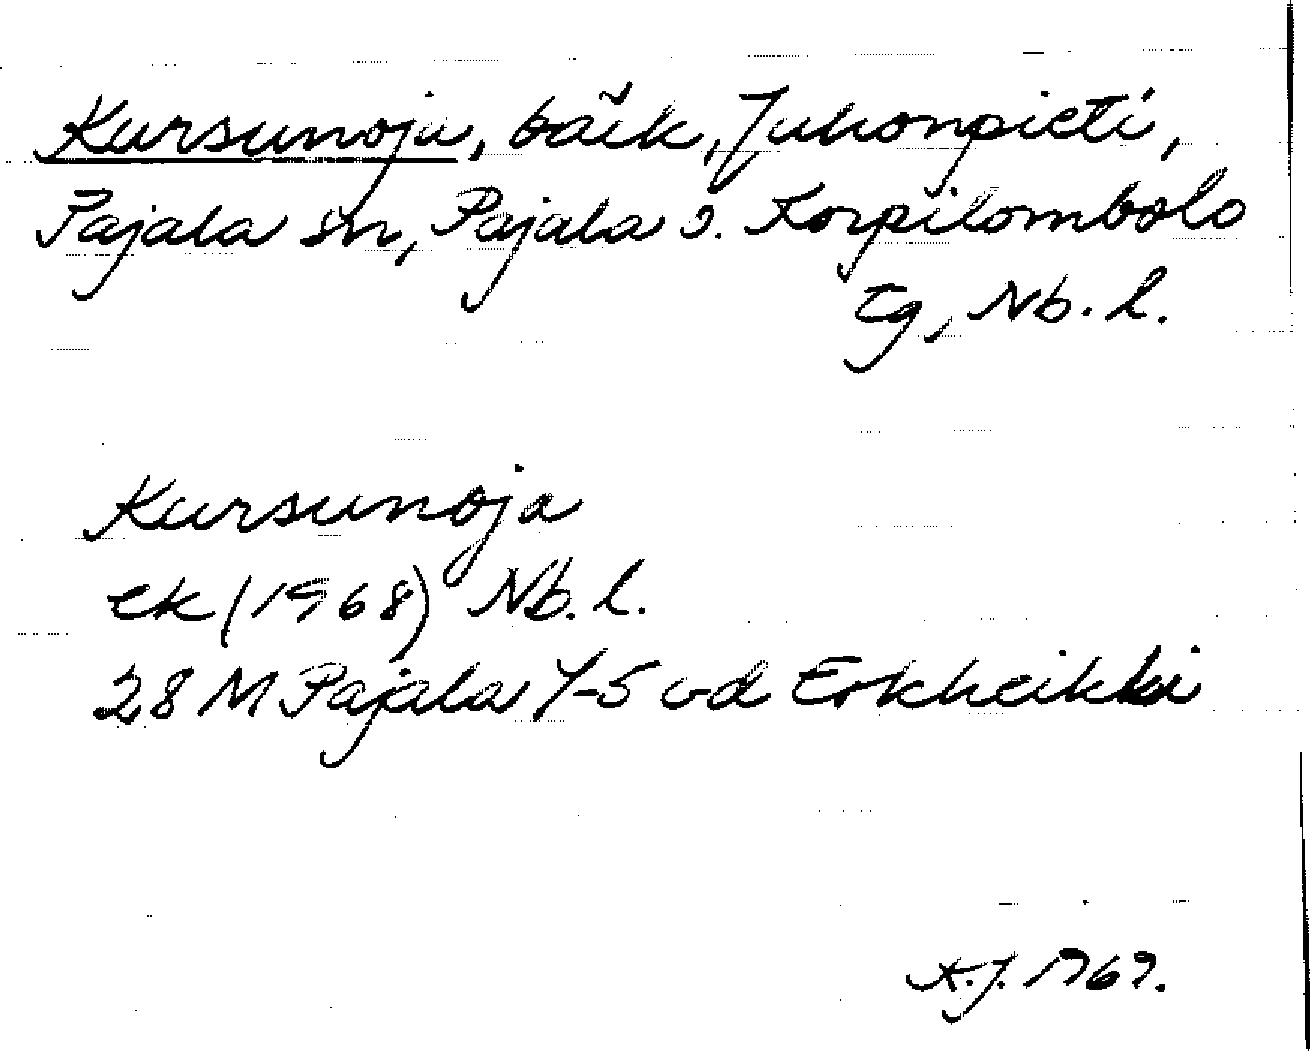 Kursunoja, bäck, Juhonpieti,
Pajala sn, Pajala o. Korpilombolo
tg, Nb. l.
Kursunoja
ek (1968) Nb. l.
28 M Pajala 7-5 vd Erkheikki
K.J. 1969.